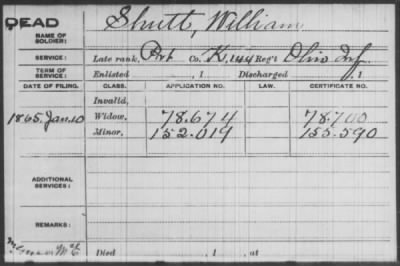 DEAD
NAME OF SOLDIER: Shutt, William
SERVICE: Late rank, Pvt Co. K, 144 Reg't Ohio Inf.
TERM OF SERVICE: Enlisted , 1 Discharged , 1
DATE OF FILING. CLASS. APPLICATION NO. LAW. CERTIFICATE NO.
Invalid,
1865 Jan. 10 Widow, 78.674 78.700
Minor, 152.019 155.590
ADDITIONAL SERVICES:
REMARKS:
Died , 1 , at